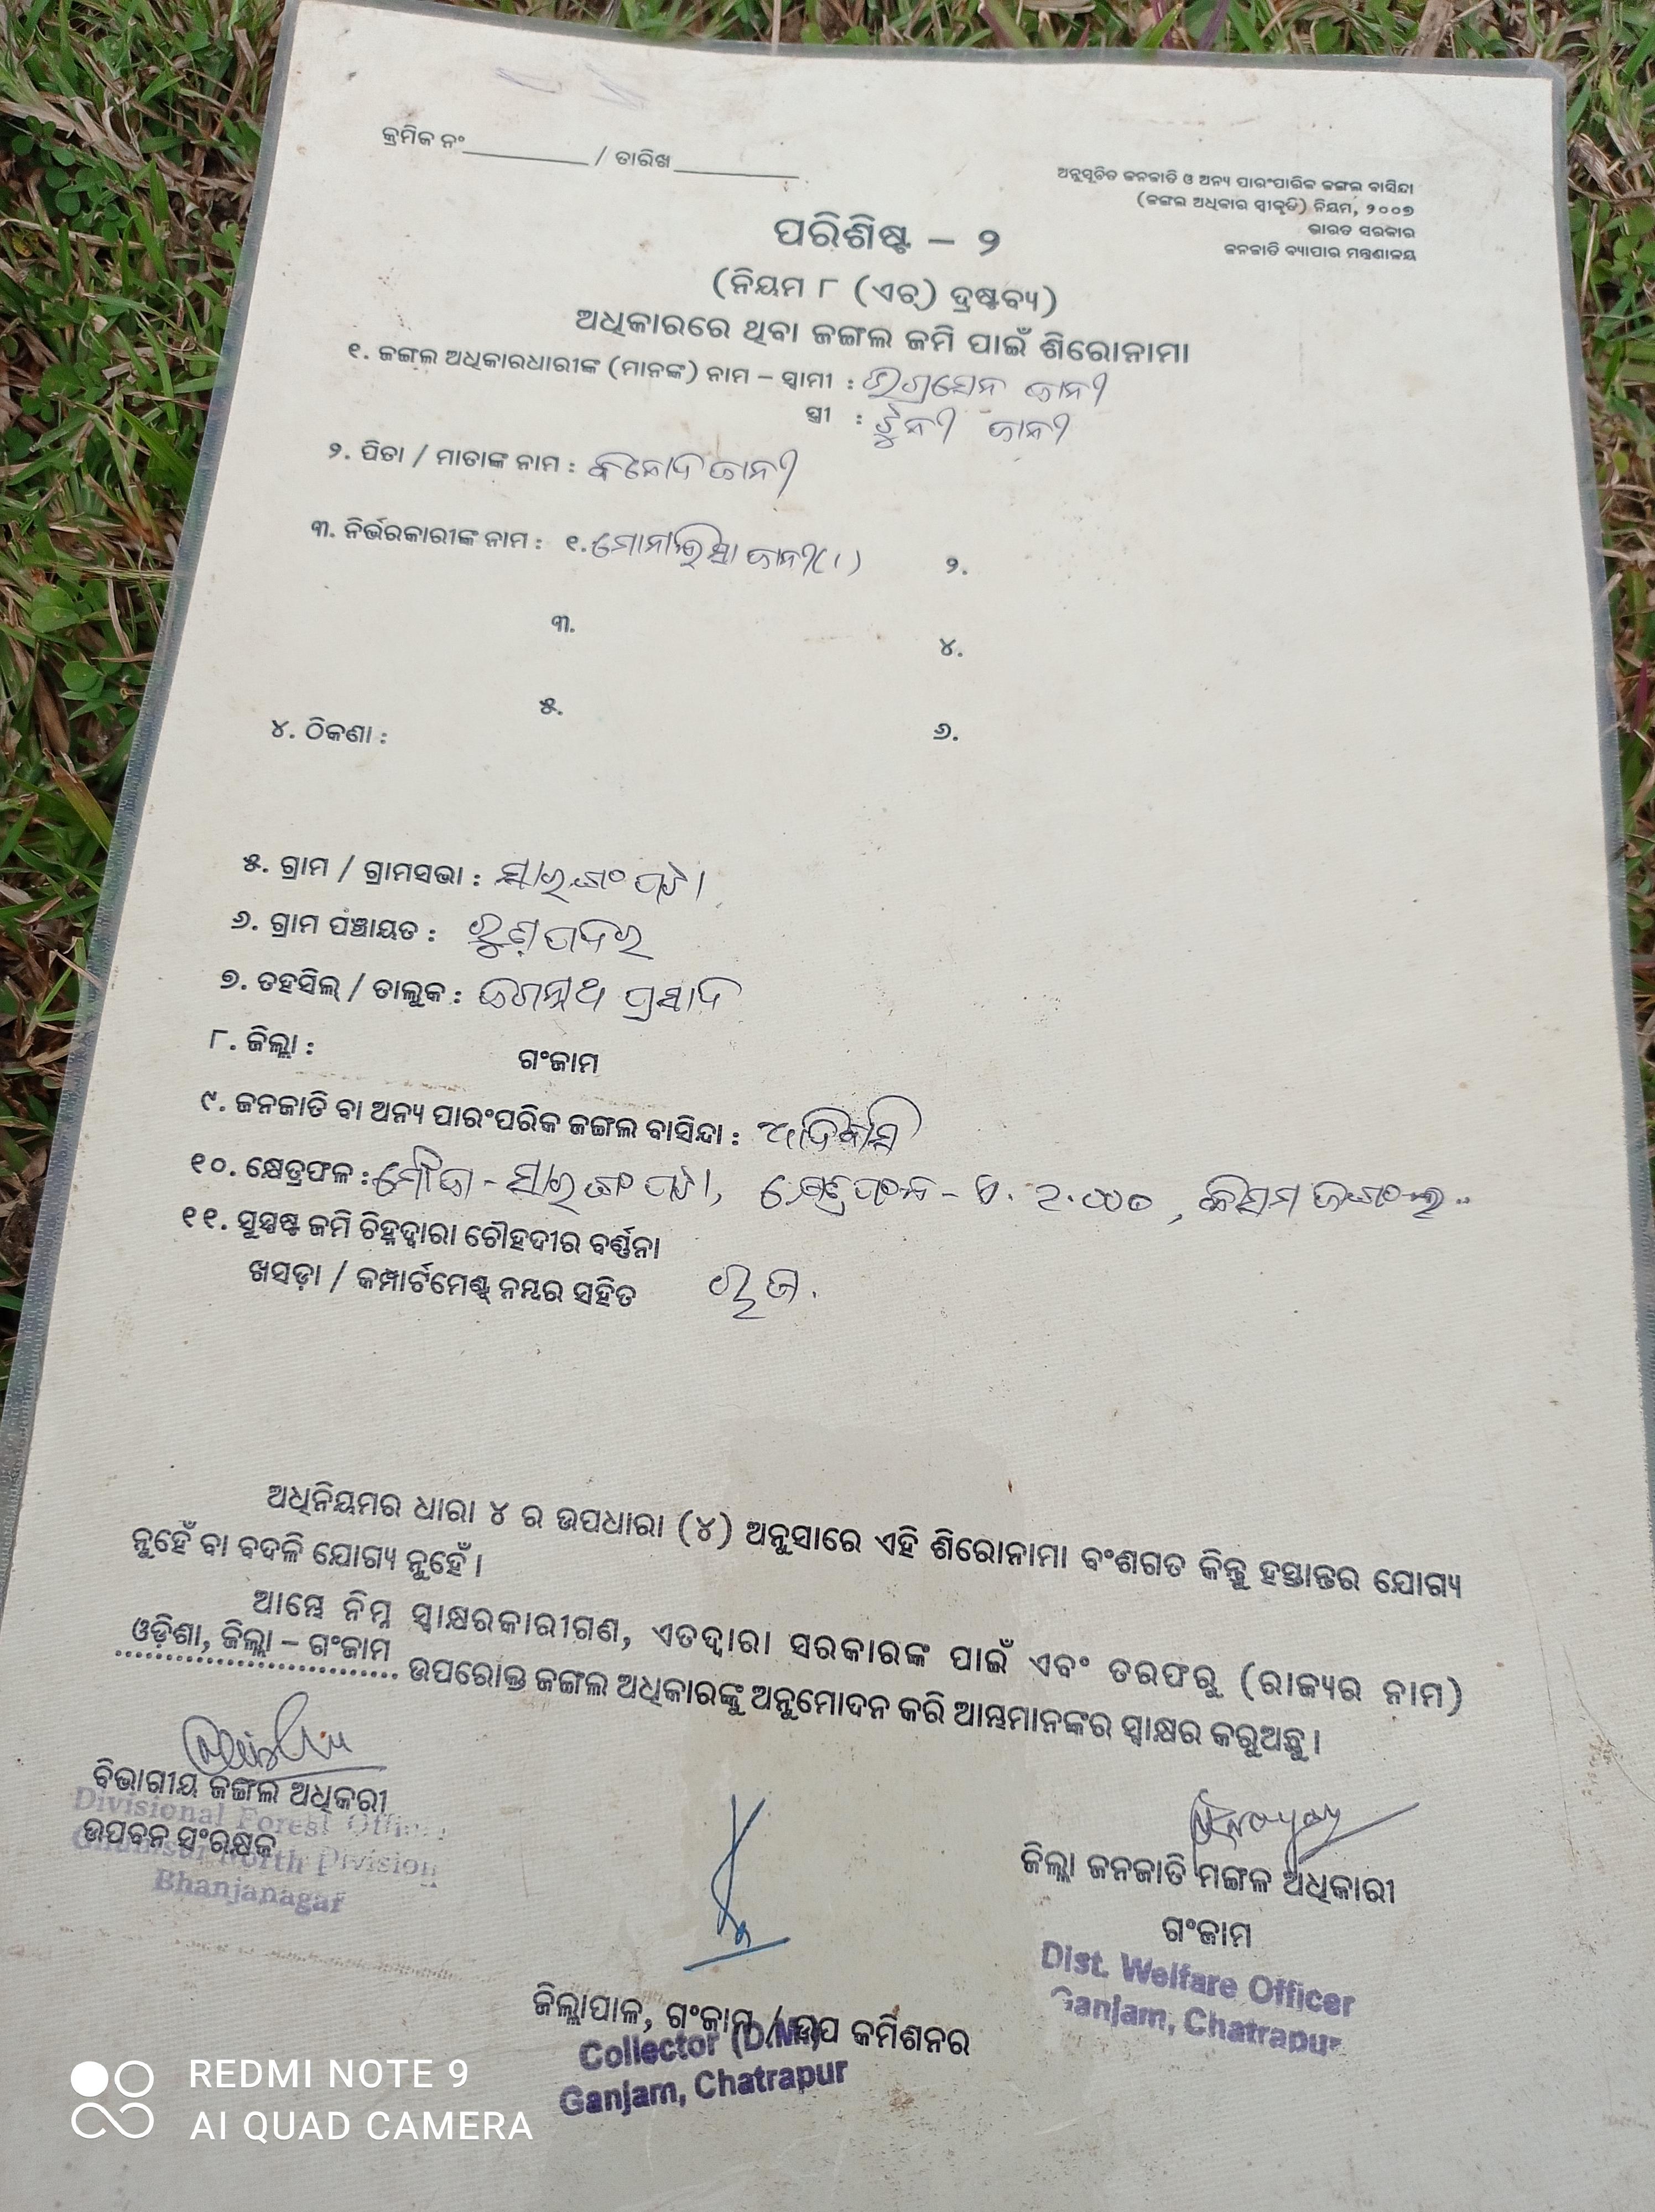 କ୍ରମିକ ନଂ__________ / ତାରିଖ__________
ଅନୁସୂଚିତ ଜନଜାତି ଓ ଅନ୍ୟ ପାରଂପାରିକ ଜଙ୍ଗଲ ବାସିନ୍ଦା
(ଜଙ୍ଗଲ ଅଧିକାର ସ୍ୱୀକୃତି) ନିୟମ, ୨୦୦୭
ଭାରତ ସରକାର
ଜନଜାତି ବ୍ୟାପାର ମନ୍ତ୍ରଣାଳୟ
ପରିଶିଷ୍ଟ – ୨
(ନିୟମ ୮ (ଏଚ୍) ଦ୍ରଷ୍ଟବ୍ୟ)
ଅଧିକାରରେ ଥିବା ଜଙ୍ଗଲ ଜମି ପାଇଁ ଶିରୋନାମା
୧. ଜଙ୍ଗଲ ଅଧିକାରଧାରୀଙ୍କ (ମାନଙ୍କ) ନାମ – ସ୍ୱାମୀ : ଉଗ୍ରସେନ ଜାନୀ
ସ୍ତ୍ରୀ : ଟୁନୀ ଜାନୀ
୨. ପିତା / ମାତାଙ୍କ ନାମ : ବିନୋଦ ଜାନୀ
୩. ନିର୍ଭରକାରୀଙ୍କ ନାମ : ୧. ମୋନାଲିସା ଜାନୀ
୨.
୩.
୪.
୫.
୬.
୪. ଠିକଣା :
୫. ଗ୍ରାମ / ଗ୍ରାମସଭା :
୬. ଗ୍ରାମ ପଞ୍ଚାୟତ :
୭. ତହସିଲ୍ / ତାଲୁକ : ଜଗନ୍ନାଥ ପ୍ରସାଦ
୮. ଜିଲ୍ଲା : ଗଂଜାମ
୯. ଜନଜାତି ବା ଅନ୍ୟ ପାରଂପରିକ ଜଙ୍ଗଲ ବାସିନ୍ଦା : ଆଦିବାସି
୧୦. କ୍ଷେତ୍ରଫଳ : ମୌଜା -
୧୧. ସୁସ୍ପଷ୍ଟ ଜମି ଚିହ୍ନଦ୍ୱାରା ଚୌହଦୀର ବର୍ଣ୍ଣନା
ଖସଡ଼ା / କମ୍ପାର୍ଟମେଣ୍ଟ୍ ନମ୍ବର ସହିତ
ଅଧିନିୟମର ଧାରା ୪ ର ଉପଧାରା (୪) ଅନୁସାରେ ଏହି ଶିରୋନାମା ବଂଶଗତ କିନ୍ତୁ ହସ୍ତାନ୍ତର ଯୋଗ୍ୟ
ନୁହେଁ ବା ବଦଳି ଯୋଗ୍ୟ ନୁହେଁ ।
ଆମ୍ଭେ ନିମ୍ନ ସ୍ୱାକ୍ଷରକାରୀଗଣ, ଏତଦ୍ୱାରା ସରକାରଙ୍କ ପାଇଁ ଏବଂ ତରଫରୁ (ରାଜ୍ୟର ନାମ)
ଓଡ଼ିଶା, ଜିଲ୍ଲା – ଗଂଜାମ ଉପରୋକ୍ତ ଜଙ୍ଗଲ ଅଧିକାରଙ୍କୁ ଅନୁମୋଦନ କରି ଆମ୍ଭମାନଙ୍କର ସ୍ୱାକ୍ଷର କରୁଅଛୁ ।
ବିଭାଗୀୟ ଜଙ୍ଗଲ ଅଧିକରୀ
Divisional Forest Officer
ଉପବନ ସଂରକ୍ଷକ
Ghumsur North Division
Bhanjanagar
ଜିଲ୍ଲା ଜନଜାତି ମଙ୍ଗଳ ଅଧିକାରୀ
ଗଂଜାମ
Dist. Welfare Officer
Ganjam, Chatrapur
ଜିଲ୍ଲାପାଳ, ଗଂଜାମ / ଉପ କମିଶନର
Collector (D.M)
Ganjam, Chatrapur
REDMI NOTE 9
AI QUAD CAMERA